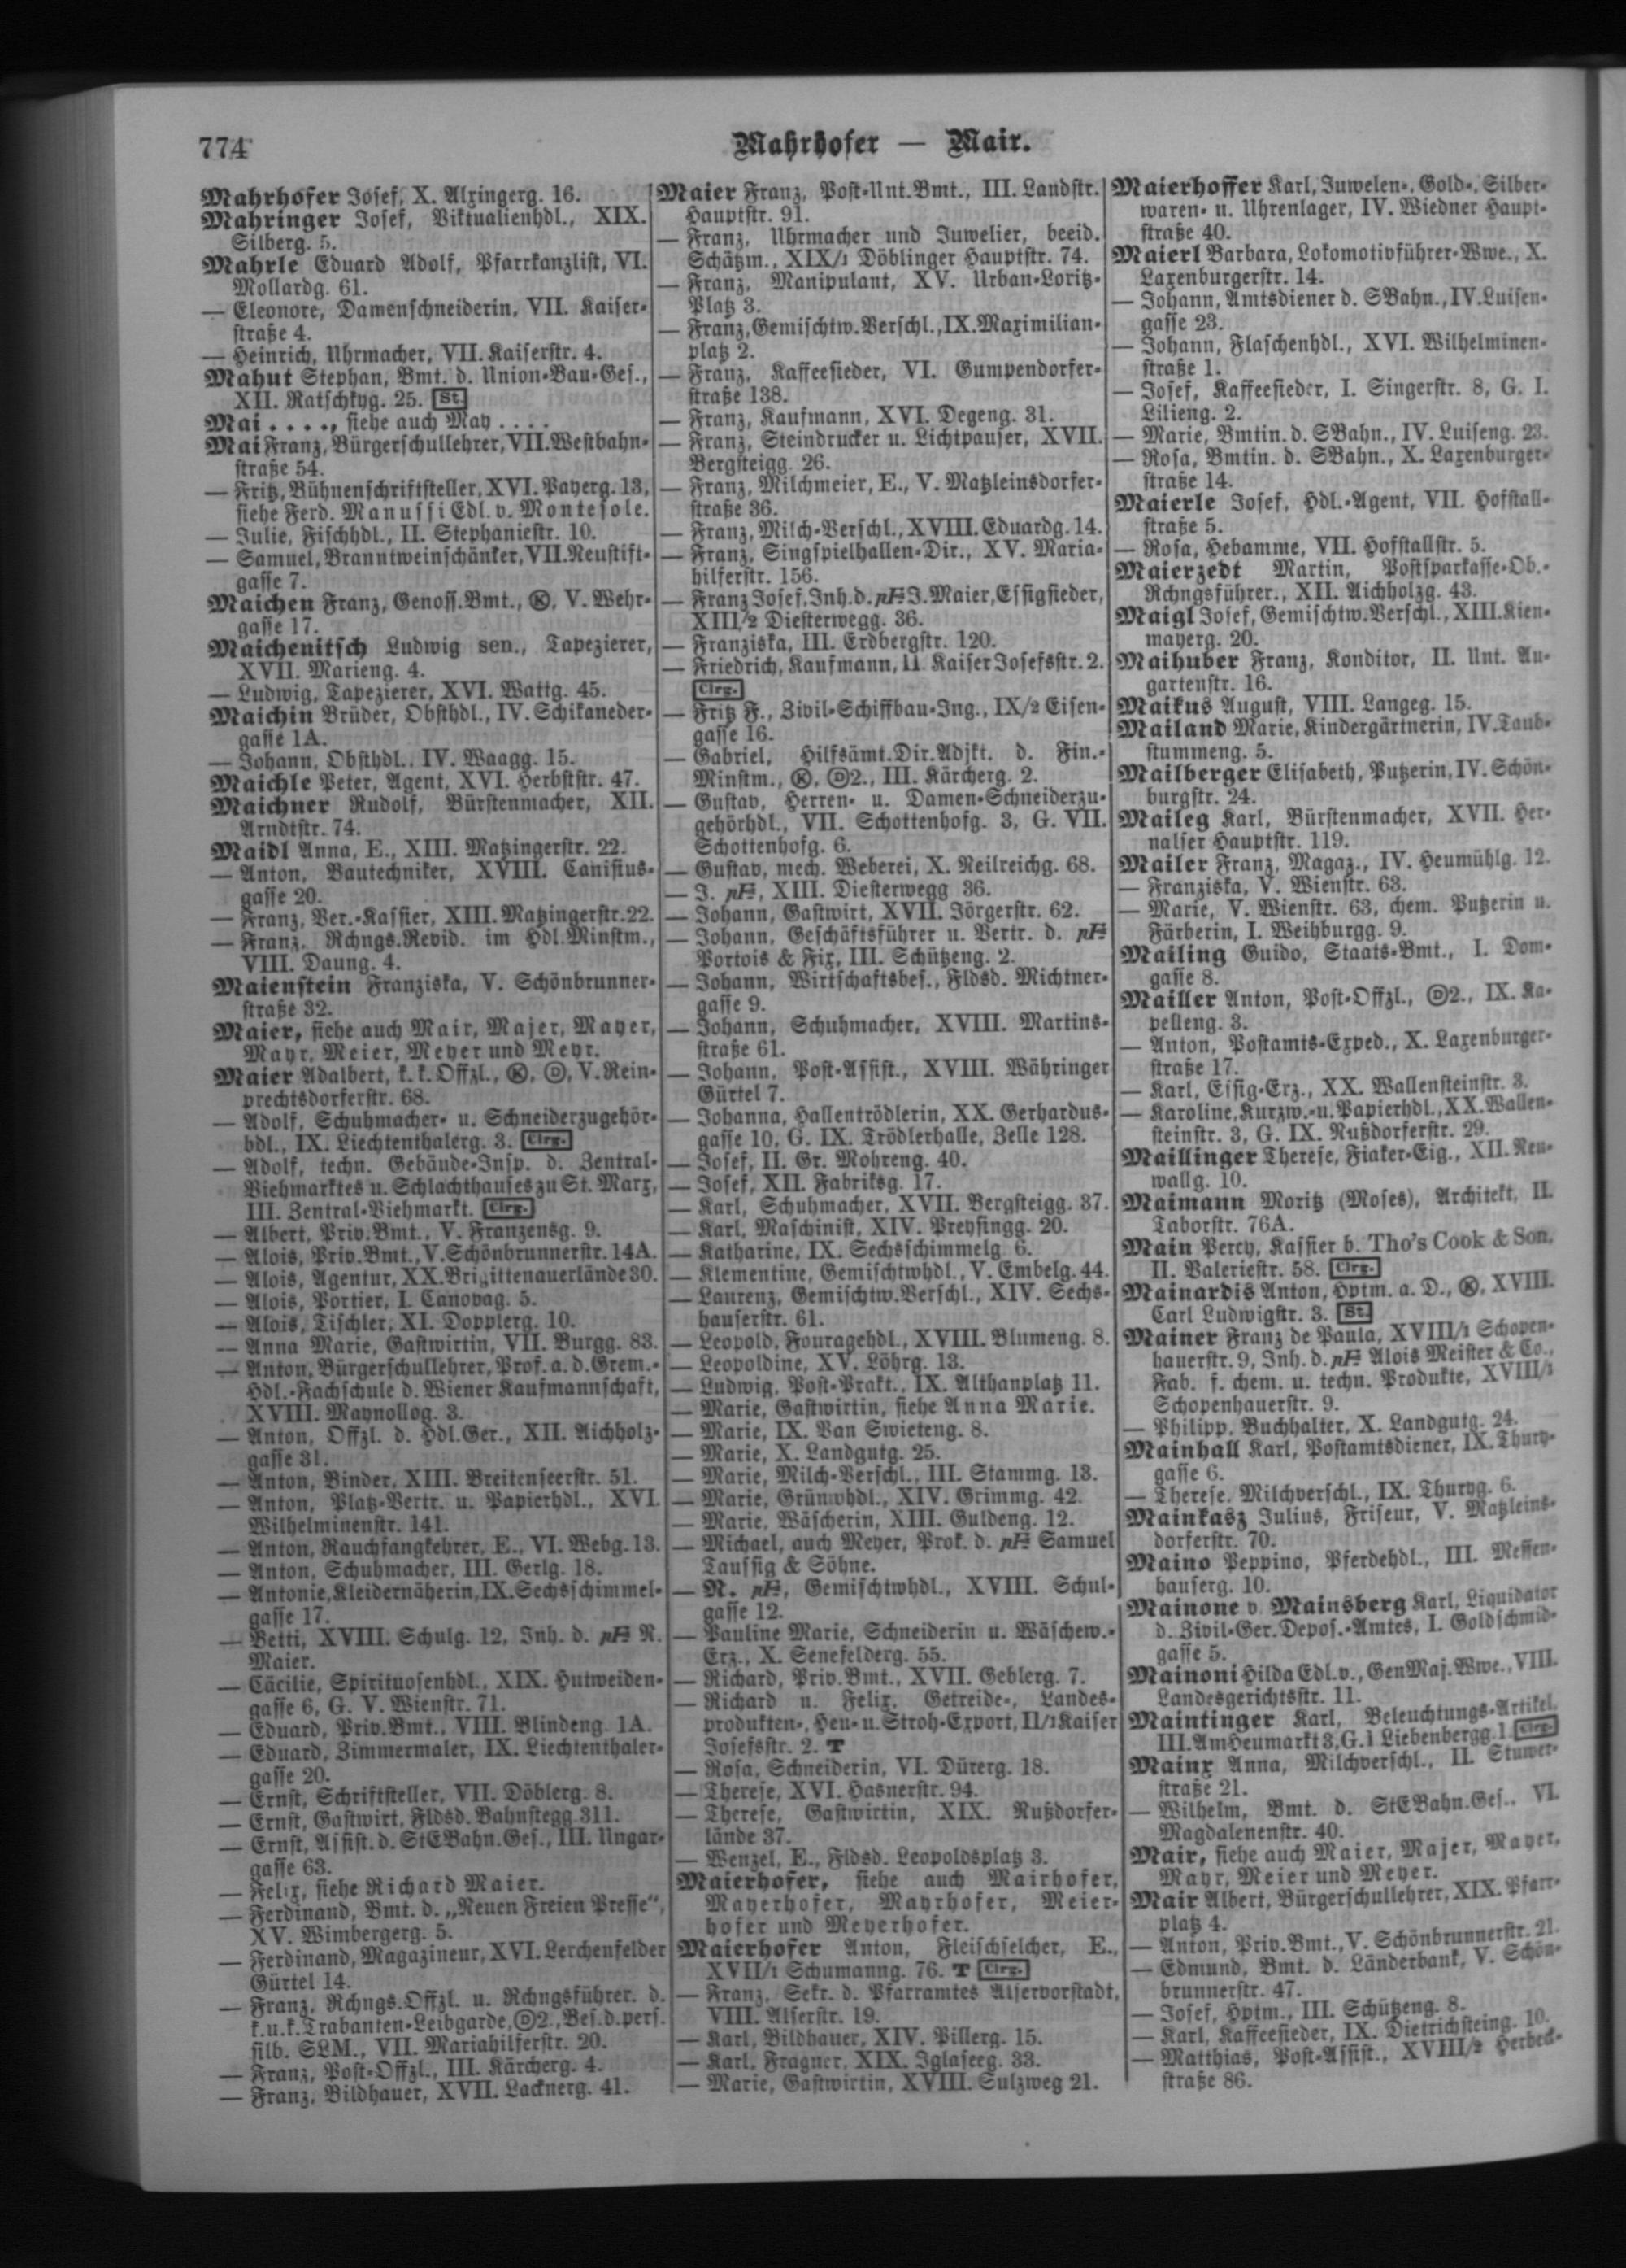 774
Mahrhofer — Mair.
Mahrhofer Josef, X. Alxingerg. 16.
Mahringer Josef, Viktualienhdl., XIX.
Silberg. 5.
Mahrle Eduard Adolf, Pfarrkanzlist, VI.
Mollardg. 61.
— Eleonore, Damenschneiderin, VII. Kaiser-
straße 4.
— Heinrich, Uhrmacher, VII. Kaiserstr. 4.
Mahut Stephan, Bmt. d. Union-Bau-Ges.,
XII. Ratschkyg. 25. St.
Mai . . . ., siehe auch May . . . .
Mai Franz, Bürgerschullehrer, VII. Westbahn-
straße 54.
— Fritz, Bühnenschriftsteller, XVI. Payerg. 13,
siehe Ferd. Manussi Edl. v. Montesole.
— Julie, Fischhdl., II. Stephaniestr. 10.
— Samuel, Branntweinschänker, VII. Neustift-
gasse 7.
Maichen Franz, Genoss. Bmt., Ⓚ, V. Wehr-
gasse 17.
Maichenitsch Ludwig sen., Tapezierer,
XVII. Marieng. 4.
— Ludwig, Tapezierer, XVI. Wattg. 45.
Maichin Brüder, Obsthdl., IV. Schikaneder-
gasse 1A.
— Johann, Obsthdl., IV. Waagg. 15.
Maichle Peter, Agent, XVI. Herbststr. 47.
Maichner Rudolf, Bürstenmacher, XII.
Arndtstr. 74.
Maidl Anna, E., XIII. Matzingerstr. 22.
— Anton, Bautechniker, XVIII. Canisius-
gasse 20.
— Franz, Ver.-Kassier, XIII. Matzingerstr. 22.
— Franz, Rchngs.Revid. im Hdl.Minstm.,
VIII. Daung. 4.
Maienstein Franziska, V. Schönbrunner-
straße 32.
Maier, siehe auch Mair, Majer, Mayer,
Mayr, Meier, Meyer und Meyr.
Maier Adalbert, k. k. Offzl., Ⓚ, Ⓓ, V. Rein-
prechtsdorferstr. 68.
— Adolf, Schuhmacher- u. Schneiderzugehör-
hdl., IX. Liechtenthalerg. 3. Clrg.
— Adolf, techn. Gebäude-Insp. d. Zentral-
Viehmarktes u. Schlachthauses zu St. Marx,
III. Zentral-Viehmarkt. Clrg.
— Albert, Priv.Bmt., V. Franzensg. 9.
— Alois, Priv.Bmt., V. Schönbrunnerstr. 14A.
— Alois, Agentur, XX. Brigittenauerlände 30.
— Alois, Portier, I. Canovag. 5.
— Alois, Tischler, XI. Dopplerg. 10.
— Anna Marie, Gastwirtin, VII. Burgg. 83.
— Anton, Bürgerschullehrer, Prof. a. d. Grem.-
Hdl.-Fachschule d. Wiener Kaufmannschaft,
XVIII. Maynollog. 3.
— Anton, Offzl. d. Hdl.Ger., XII. Aichholz-
gasse 31.
— Anton, Binder, XIII. Breitenseerstr. 51.
— Anton, Platz-Vertr. u. Papierhdl., XVI.
Wilhelminenstr. 141.
— Anton, Rauchfangkehrer, E., VI. Webg. 13.
— Anton, Schuhmacher, III. Gerlg. 18.
— Antonie, Kleidernäherin, IX. Sechsschimmel-
gasse 17.
— Betti, XVIII. Schulg. 12, Inh. d. pF R.
Maier.
— Cäcilie, Spirituosenhdl., XIX. Hutweiden-
gasse 6, G. V. Wienstr. 71.
— Eduard, Priv.Bmt., VIII. Blindeng. 1A.
— Eduard, Zimmermaler, IX. Liechtenthaler-
gasse 20.
— Ernst, Schriftsteller, VII. Döblerg. 8.
— Ernst, Gastwirt, Fldsd. Bahnstegg. 311.
— Ernst, Assist. d. StEBahn.Ges., III. Ungar-
gasse 63.
— Felix, siehe Richard Maier.
— Ferdinand, Bmt. d. „Neuen Freien Presse“,
XV. Wimbergerg. 5.
— Ferdinand, Magazineur, XVI. Lerchenfelder
Gürtel 14.
— Franz, Rchngs.Offzl. u. Rchngsführer. d.
k. u. k. Trabanten-Leibgarde, Ⓓ2., Bes. d. pers.
silb. SLM., VII. Mariahilferstr. 20.
— Franz, Post-Offzl., III. Kärcherg. 4.
— Franz, Bildhauer, XVII. Lacknerg. 41.
Maier Franz, Post-Unt.Bmt., III. Landstr.
Hauptstr. 91.
— Franz, Uhrmacher und Juwelier, beeid.
Schätzm., XIX/1 Döblinger Hauptstr. 74.
— Franz, Manipulant, XV. Urban-Loritz-
Platz 3.
— Franz, Gemischtw.Verschl., IX. Maximilian-
platz 2.
— Franz, Kaffeesieder, VI. Gumpendorfer-
straße 138.
— Franz, Kaufmann, XVI. Degeng. 31.
— Franz, Steindrucker u. Lichtpauser, XVII.
Bergsteigg. 26.
— Franz, Milchmeier, E., V. Matzleinsdorfer-
straße 36.
— Franz, Milch-Verschl., XVIII. Eduardg. 14.
— Franz, Singspielhallen-Dir., XV. Maria-
hilferstr. 156.
— Franz Josef, Inh. d. pF J. Maier, Essigsieder,
XIII/2 Diesterwegg. 36.
— Franziska, III. Erdbergstr. 120.
— Friedrich, Kaufmann, II. Kaiser Josefsstr. 2.
Clrg.
— Fritz F., Zivil-Schiffbau-Ing., IX/2 Eisen-
gasse 16.
— Gabriel, Hilfsämt.Dir.Adjkt. d. Fin.-
Minstm., Ⓚ, Ⓓ2., III. Kärcherg. 2.
— Gustav, Herren- u. Damen-Schneiderzu-
gehörhdl., VII. Schottenhofg. 3, G. VII.
Schottenhofg. 6.
— Gustav, mech. Weberei, X. Neilreichg. 68.
— J. pF, XIII. Diesterwegg 36.
— Johann, Gastwirt, XVII. Jörgerstr. 62.
— Johann, Geschäftsführer u. Vertr. d. pF
Portois & Fix, III. Schützeng. 2.
— Johann, Wirtschaftsbes., Fldsd. Michtner-
gasse 9.
— Johann, Schuhmacher, XVIII. Martins-
straße 61.
— Johann, Post-Assist., XVIII. Währinger
Gürtel 7.
— Johanna, Hallentrödlerin, XX. Gerhardus-
gasse 10, G. IX. Trödlerhalle, Zelle 128.
— Josef, II. Gr. Mohreng. 40.
— Josef, XII. Fabriksg. 17.
— Karl, Schuhmacher, XVII. Bergsteigg. 37.
— Karl, Maschinist, XIV. Preysingg. 20.
— Katharine, IX. Sechsschimmelg. 6.
— Klementine, Gemischtwhdl., V. Embelg. 44.
— Laurenz, Gemischtw.Verschl., XIV. Sechs-
hauserstr. 61.
— Leopold, Fouragehdl., XVIII. Blumeng. 8.
— Leopoldine, XV. Löhrg. 13.
— Ludwig, Post-Prakt., IX. Althanplatz 11.
— Marie, Gastwirtin, siehe Anna Marie.
— Marie, IX. Van Swieteng. 8.
— Marie, X. Landgutg. 25.
— Marie, Milch-Verschl., III. Stammg. 13.
— Marie, Grünwhdl., XIV. Grimmg. 42.
— Marie, Wäscherin, XIII. Guldeng. 12.
— Michael, auch Meyer, Prok. d. pF Samuel
Taussig & Söhne.
— R. pF, Gemischtwhdl., XVIII. Schul-
gasse 12.
— Pauline Marie, Schneiderin u. Wäschew.-
Erz., X. Senefelderg. 55.
— Richard, Priv.Bmt., XVII. Geblerg. 7.
— Richard u. Felix, Getreide-, Landes-
produkten-, Heu- u. Stroh-Export, II/1 Kaiser
Josefsstr. 2. T
— Rosa, Schneiderin, VI. Dürerg. 18.
— Therese, XVI. Hasnerstr. 94.
— Therese, Gastwirtin, XIX. Nußdorfer-
lände 37.
— Wenzel, E., Fldsd. Leopoldsplatz 3.
Maierhofer, siehe auch Mairhofer,
Mayerhofer, Mayrhofer, Meier-
hofer und Meyerhofer.
Maierhofer Anton, Fleischselcher, E.,
XVII/1 Schumanng. 76. T Clrg.
— Franz, Sekr. d. Pfarramtes Alservorstadt,
VIII. Alserstr. 19.
— Karl, Bildhauer, XIV. Pillerg. 15.
— Karl, Fragner, XIX. Iglaseeg. 33.
— Marie, Gastwirtin, XVIII. Sulzweg 21.
Maierhoffer Karl, Juwelen-, Gold-, Silber-
waren- u. Uhrenlager, IV. Wiedner Haupt-
straße 40.
Maierl Barbara, Lokomotivführer-Wwe., X.
Laxenburgerstr. 14.
— Johann, Amtsdiener d. SBahn., IV. Luisen-
gasse 23.
— Johann, Flaschenhdl., XVI. Wilhelminen-
straße 1.
— Josef, Kaffeesieder, I. Singerstr. 8, G. I.
Lilieng. 2.
— Marie, Bmtin. d. SBahn., IV. Luiseng. 23.
— Rosa, Bmtin. d. SBahn., X. Laxenburger-
straße 14.
Maierle Josef, Hdl.-Agent, VII. Hofstall-
straße 5.
— Rosa, Hebamme, VII. Hofstallstr. 5.
Maierzedt Martin, Postsparkasse-Ob.-
Rchngsführer., XII. Aichholzg. 43.
Maigl Josef, Gemischtw.Verschl., XIII. Kien-
mayerg. 20.
Maihuber Franz, Konditor, II. Unt. Au-
gartenstr. 16.
Maikus August, VIII. Langeg. 15.
Mailand Marie, Kindergärtnerin, IV. Taub-
stummeng. 5.
Mailberger Elisabeth, Putzerin, IV. Schön-
burgstr. 24.
Maileg Karl, Bürstenmacher, XVII. Her-
nalser Hauptstr. 119.
Mailer Franz, Magaz., IV. Heumühlg. 12.
— Franziska, V. Wienstr. 63.
— Marie, V. Wienstr. 63, chem. Putzerin u.
Färberin, I. Weihburgg. 9.
Mailing Guido, Staats-Bmt., I. Dom-
gasse 8.
Mailler Anton, Post-Offzl., Ⓓ2., IX. Ka-
pelleng. 3.
— Anton, Postamts-Exped., X. Laxenburger-
straße 17.
— Karl, Essig-Erz., XX. Wallensteinstr. 3.
— Karoline, Kurzw.- u. Papierhdl., XX. Wallen-
steinstr. 3, G. IX. Nußdorferstr. 29.
Maillinger Therese, Fiaker-Eig., XII. Neu-
wallg. 10.
Maimann Moritz (Moses), Architekt, II.
Taborstr. 76A.
Main Percy, Kassier b. Tho's Cook & Son,
II. Valeriestr. 58. Clrg.
Mainardis Anton, Hptm. a. D., Ⓚ, XVIII.
Carl Ludwigstr. 3. St.
Mainer Franz de Paula, XVIII/1 Schopen-
hauerstr. 9, Inh. d. pF Alois Meister & Co.,
Fab. f. chem. u. techn. Produkte, XVIII/1
Schopenhauerstr. 9.
— Philipp, Buchhalter, X. Landgutg. 24.
Mainhall Karl, Postamtsdiener, IX. Thury-
gasse 6.
— Therese, Milchverschl., IX. Thuryg. 6.
Mainkasz Julius, Friseur, V. Matzleins-
dorferstr. 70.
Maino Peppino, Pferdehdl., III. Messen-
hauserg. 10.
Mainone v. Mainsberg Karl, Liquidator
d. Zivil-Ger.Depos.-Amtes, I. Goldschmid-
gasse 5.
Mainoni Hilda Edl. v., GenMaj. Wwe., VIII.
Landesgerichtsstr. 11.
Maintinger Karl, Beleuchtungs-Artikel,
III. Am Heumarkt 3, G. I Liebenbergg. 1. Clrg.
Mainx Anna, Milchverschl., II. Stuwer-
straße 21.
— Wilhelm, Bmt. d. StEBahn.Ges., VI.
Magdalenenstr. 40.
Mair, siehe auch Maier, Majer, Mayer,
Mayr, Meier und Meyer.
Mair Albert, Bürgerschullehrer, XIX. Pfarr-
platz 4.
— Anton, Priv.Bmt., V. Schönbrunnerstr. 21.
— Edmund, Bmt. d. Länderbank, V. Schön-
brunnerstr. 47.
— Josef, Hptm., III. Schützeng. 8.
— Karl, Kaffeesieder, IX. Dietrichsteing. 10.
— Matthias, Post-Assist., XVIII/2 Herbeck-
straße 86.